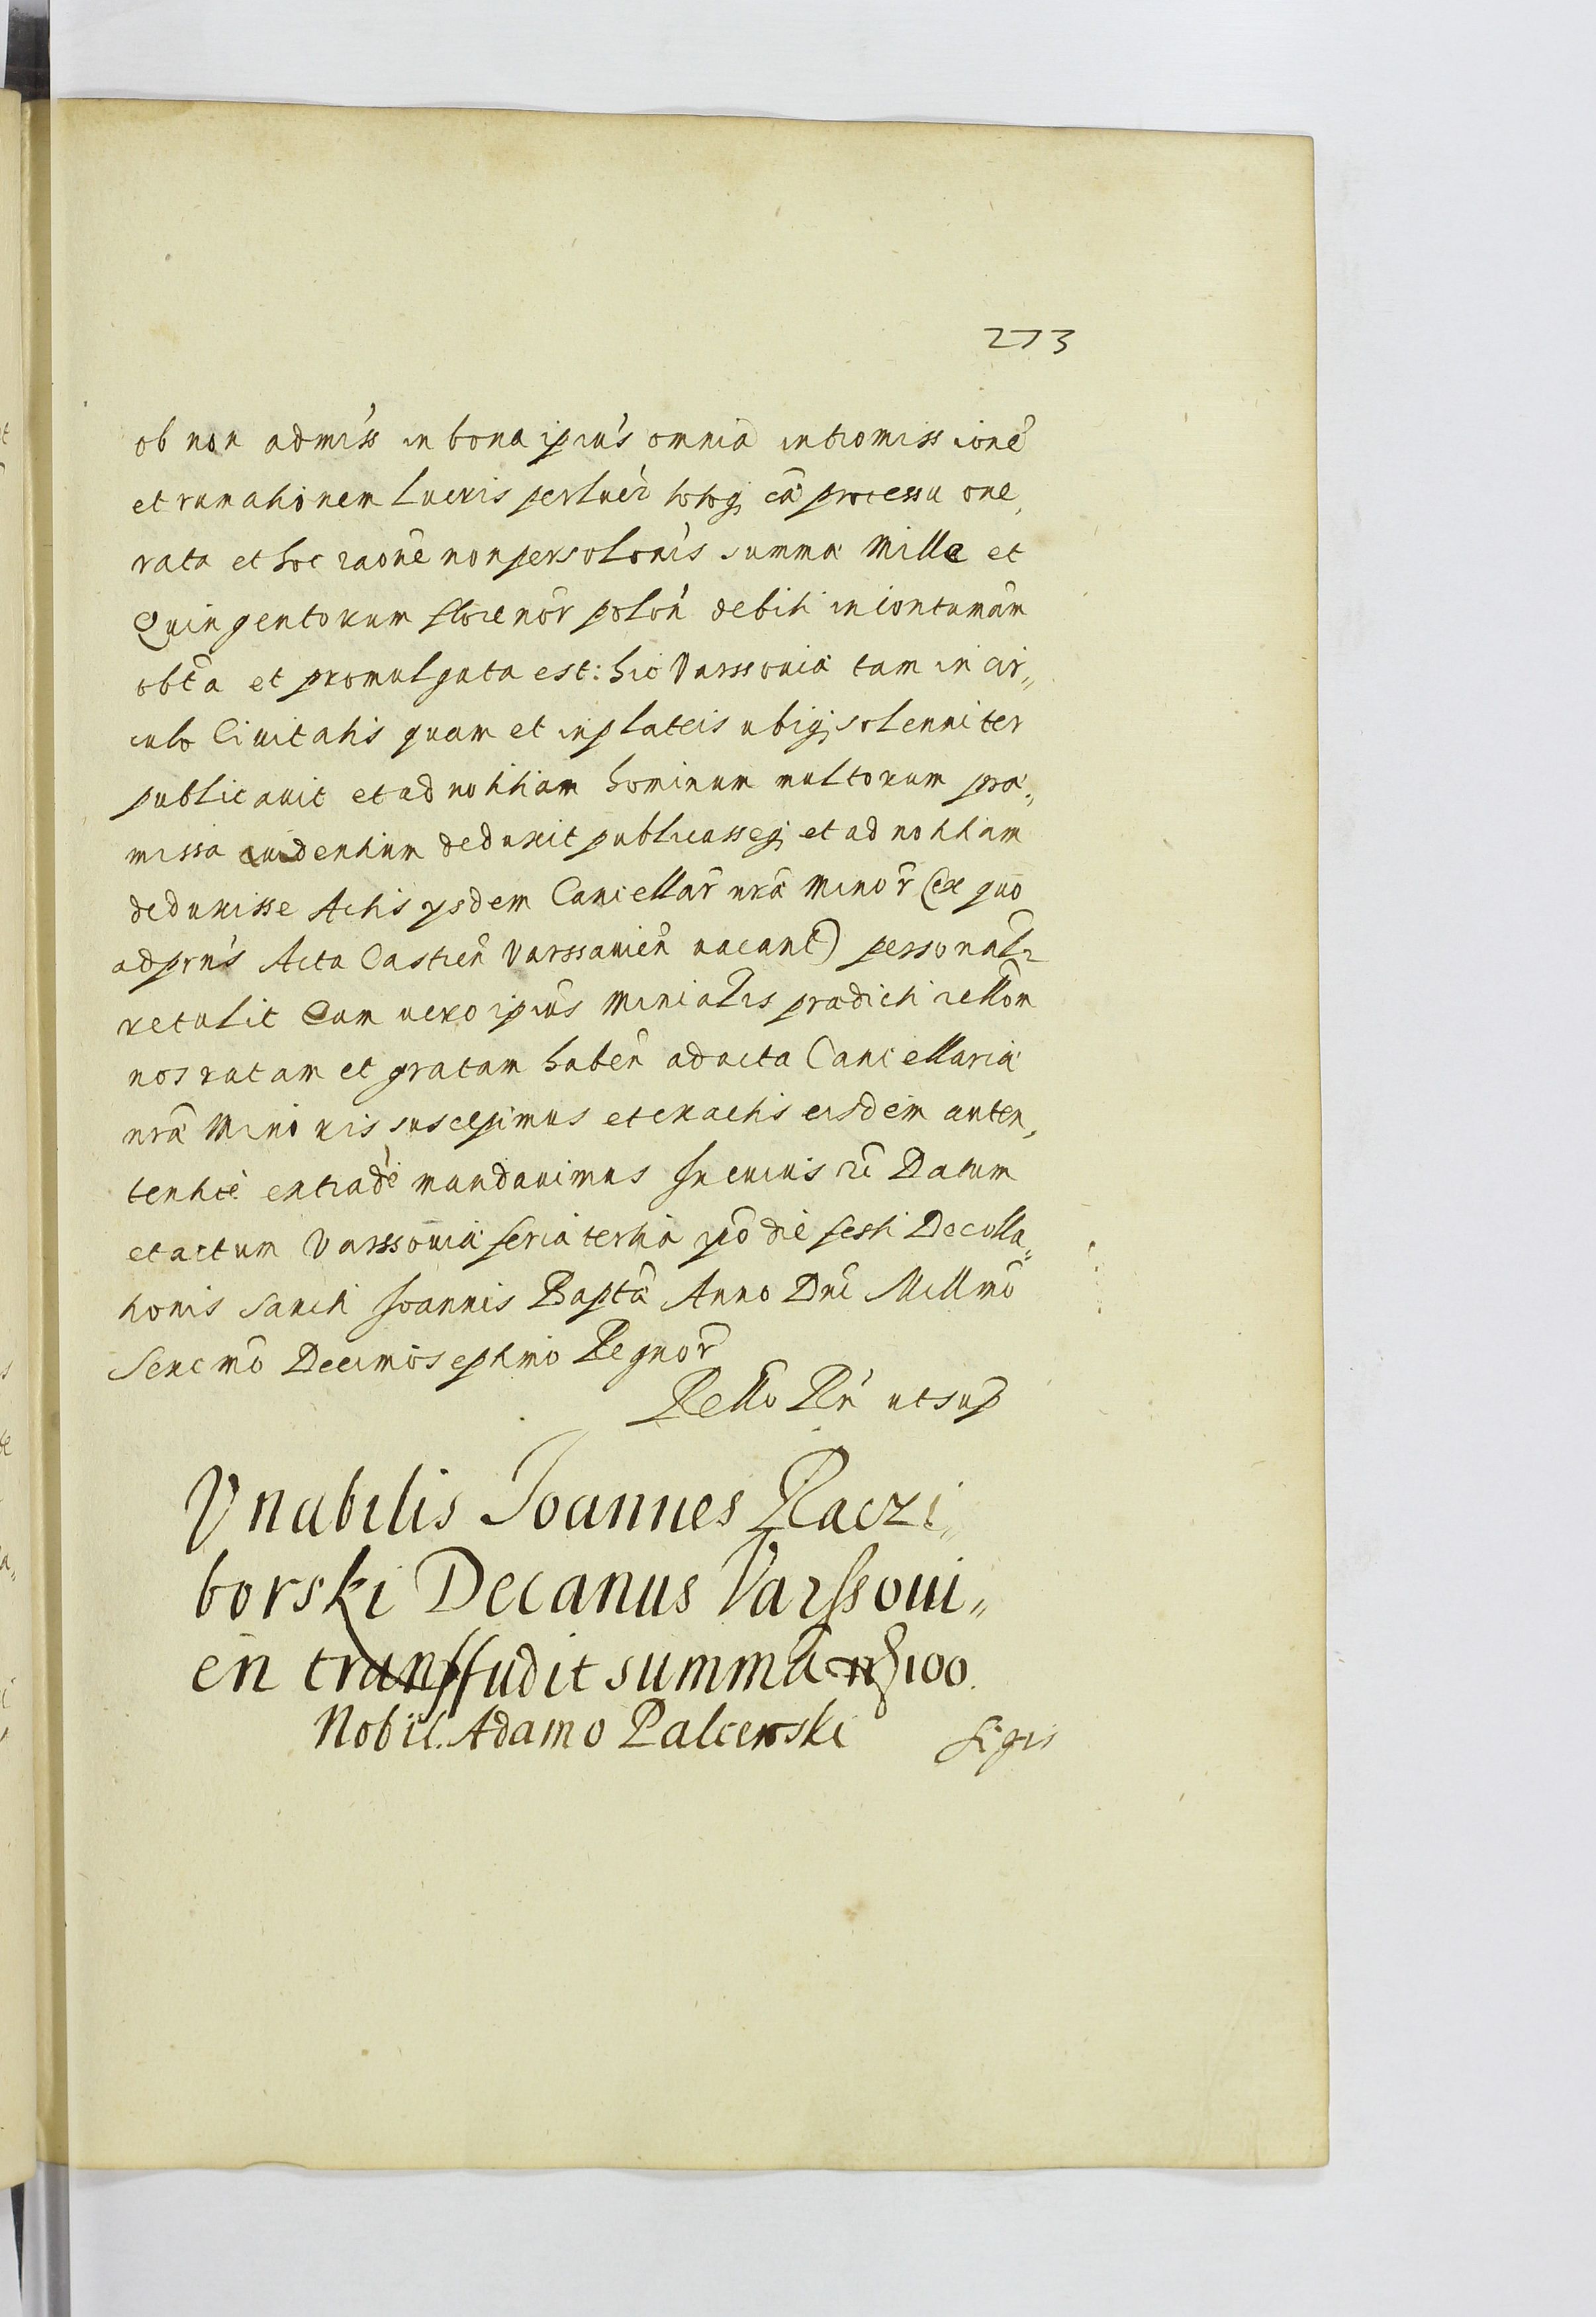 273
ob non admiss in bona ipius omnia intromissionē
et rumationem Lucris perlucr totoq; cā processu one,
rata et hoc raōne non persolōnis summæ Mille et
Quingentorum florenor̄ polōn debiti in contumām
obtā et promulgata est: hic Varssouiæ tam in cir„
culo Ciuitatis quam et in plateis ubiq; solenniter
publicauit et ad notitiam hominum multorum præ„
missa audentium deduxit publicasseq; et ad notitiam
deduxisse Actis ysdem Cancellar̄ nræ Minor̄ (ex quo
ad prns Acta Castren̄ Varssauien̄ uacant) personalr
retulit Cum uero ipius Minialis prædicti rellōm
nos ratam et gratam haben̄ ad acta Cancellariæ
nræ Minoris suscepimus et ex actis eisdem auten,
tentice extrade mandauimus In cuius rē Datum
et actum Varssouiæ feria tertia ipō die festi Decolla„
tionis Sancti Joannis Baptæ Anno Dnī Millmō
Sexcmō Decimoseptimo Regnor̄
Rello Rn̄ ut sup
Vnabilis Joannes Raczi„
borski Decanus Varssoui„
en̄ transffudit summā 100.
Nobil. Adamo Palcewski
Sigis